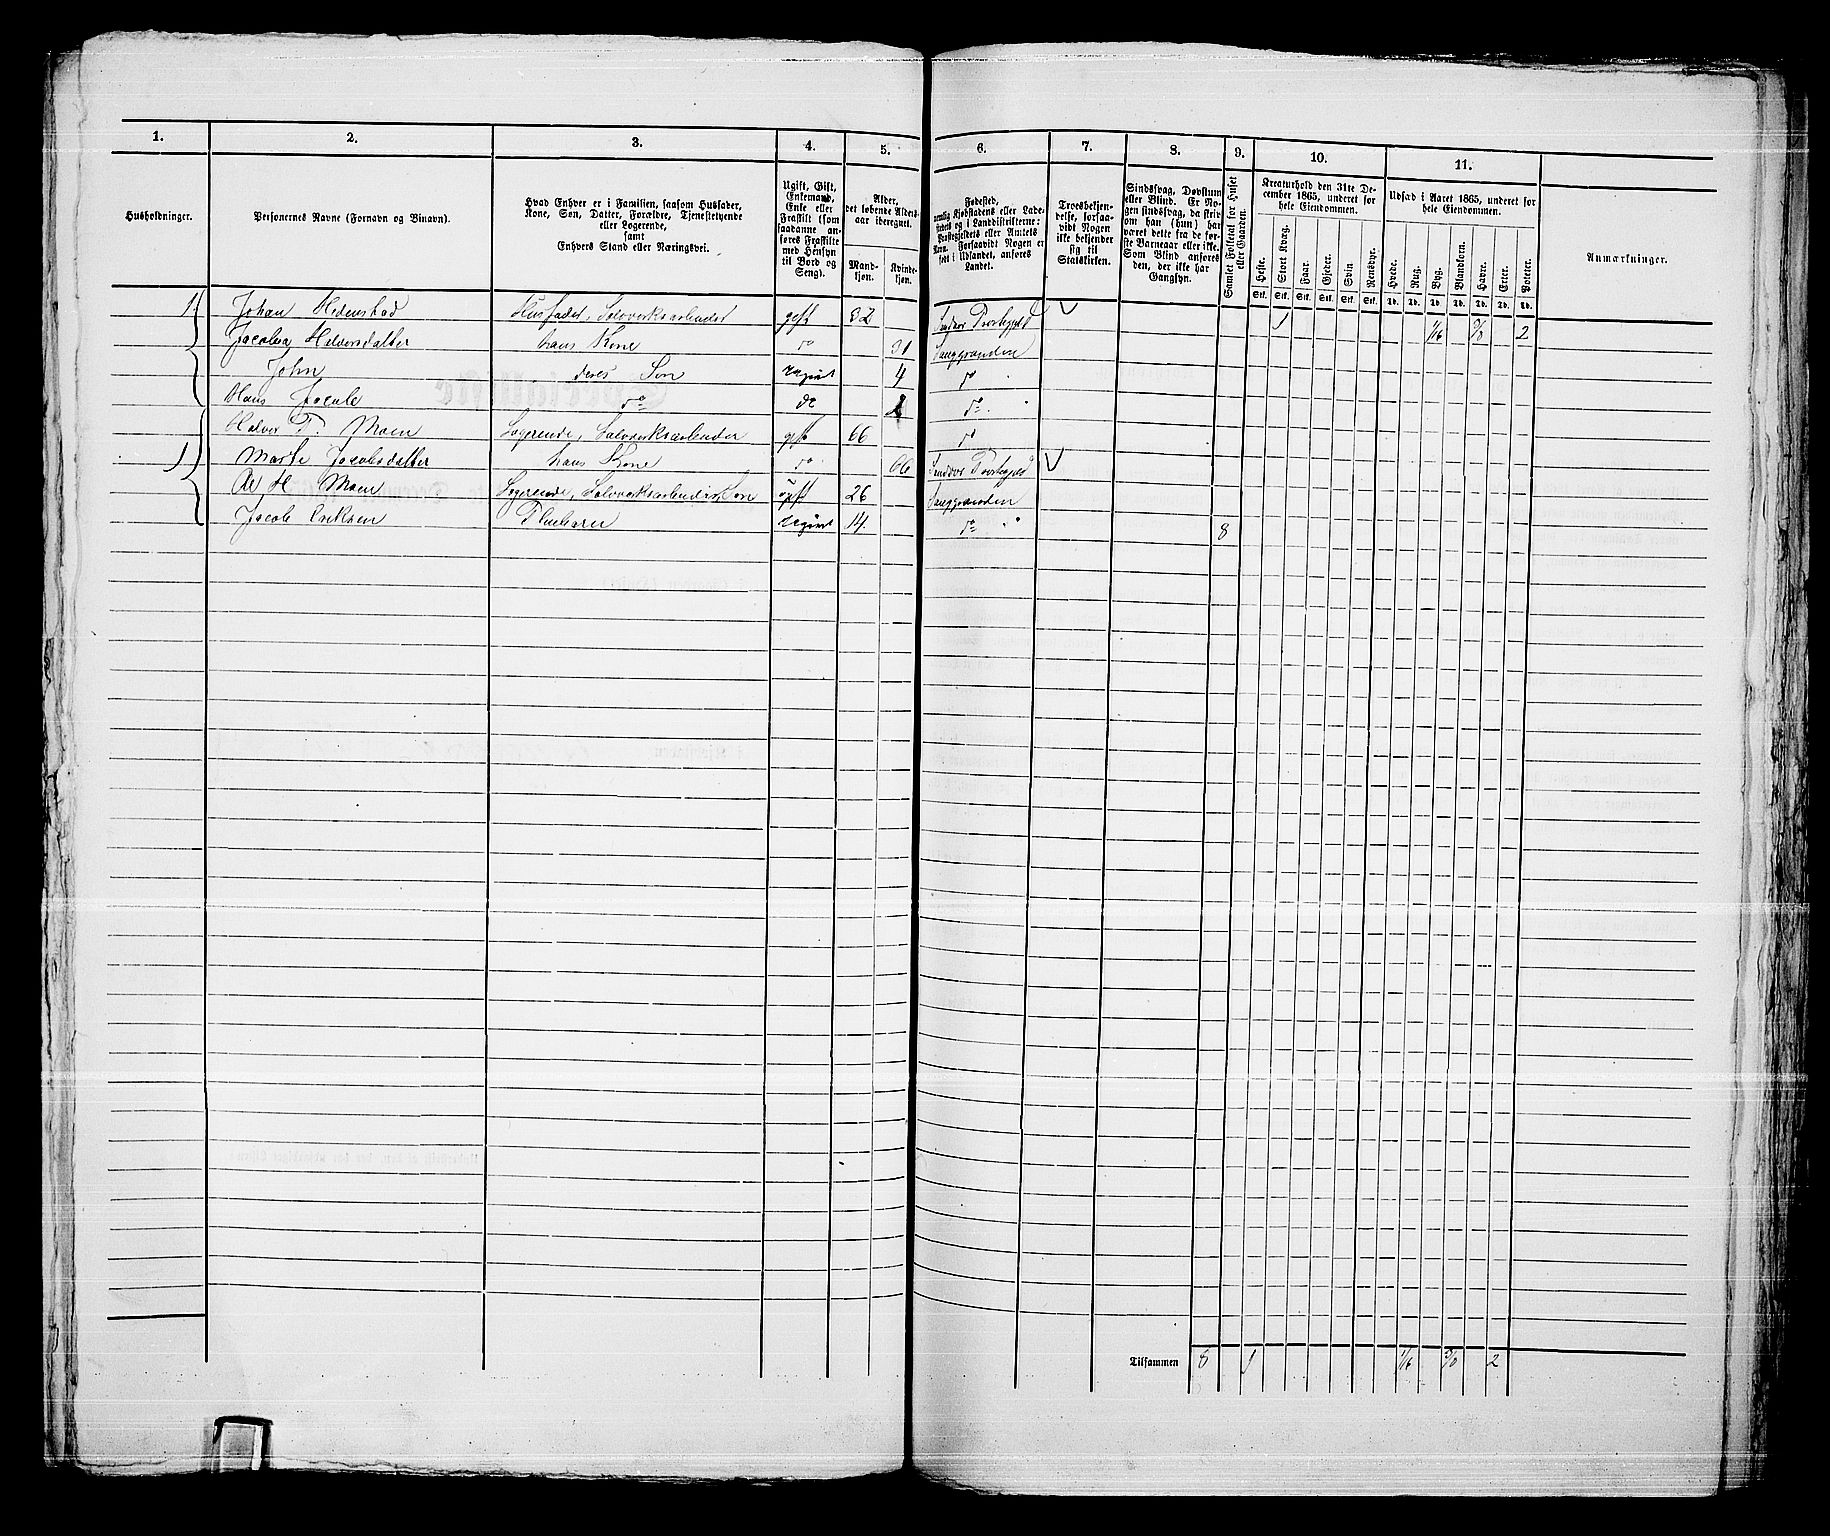 1. 2. 3. 4. 5. 6. 7. 8. 9. 10. 11.
Husholdninger.
Personernes Navne (Fornavn og Binavn).
Hvad Enhver er i Familien, saasom Husfader,
Kone, Søn, Datter, Forældre, Tjenestetyende
eller Logerende,
samt
Enhvers Stand eller Næringsvei.
Ugift, Gift,
Enkemand,
Enke eller
Fraskilt (som
saadanne an-
føres Fraskilte
med Hensyn
til Bord og
Seng).
Alder,
det løbende Alders-
aar iberegnet.
Mand-
kjøn.
Kvinde-
kjøn.
Fødested,
nemlig Kjøbstadens eller Lade-
stedets og i Landdistrikterne:
Præstegjeldets eller Amtets
Navn. Forsaavidt Nogen er
født i Udlandet, anføres
Landet.
Troesbekjen-
delse, forsaa-
vidt Nogen
ikke bekjender
sig til
Statskirken.
Sindssvag, Døvstum
eller Blind. Er No-
gen sindssvag, da skriv
om han (hun) har
været dette fra de før-
ste Barneaar eller ikke.
Som Blind anføres
den, der ikke har
Gangsyn.
Samlet Folketal for Huset
eller Gaarden.
Kreaturhold den 31te De-
cember 1865, underet for
hele Eiendommen.
Heste. Stort Kvæg. Faar. Gjeder. Svin Rensdyr.
Stk. Stk. Stk. Stk. Stk. Stk.
Udsæd i Aaret 1865, underet for
hele Eiendommen.
Hvede. Rug. Byg. Blandkorn. Havre. Erter. Poteter.
Td. Td. Td. Td. Td. Td. Td.
Anmærkninger.
1. Johan Hedenstad Husfader, Sølvverksarbeider gift 32 Sandsv Præstegjeld 1 1/16 3/8 2
Jacobea Halvorsdatter hans Kone do 31
John deres Søn ugivt 4 do "
Hans Jacob do do do "
Halvor T. Moen Logerende, Sølvverksarbeider gift 66 do
1 Marte Jacobsdatter hans Kone do 66 Sandsv Præstegjeld
H. Moen Logerende, Sølvverksarbeider, Søn gift 26
Jacob Eriksen Pleiebarn ugivt 14 do " 8
Tilsammen 8 1 1/16 3/8 2